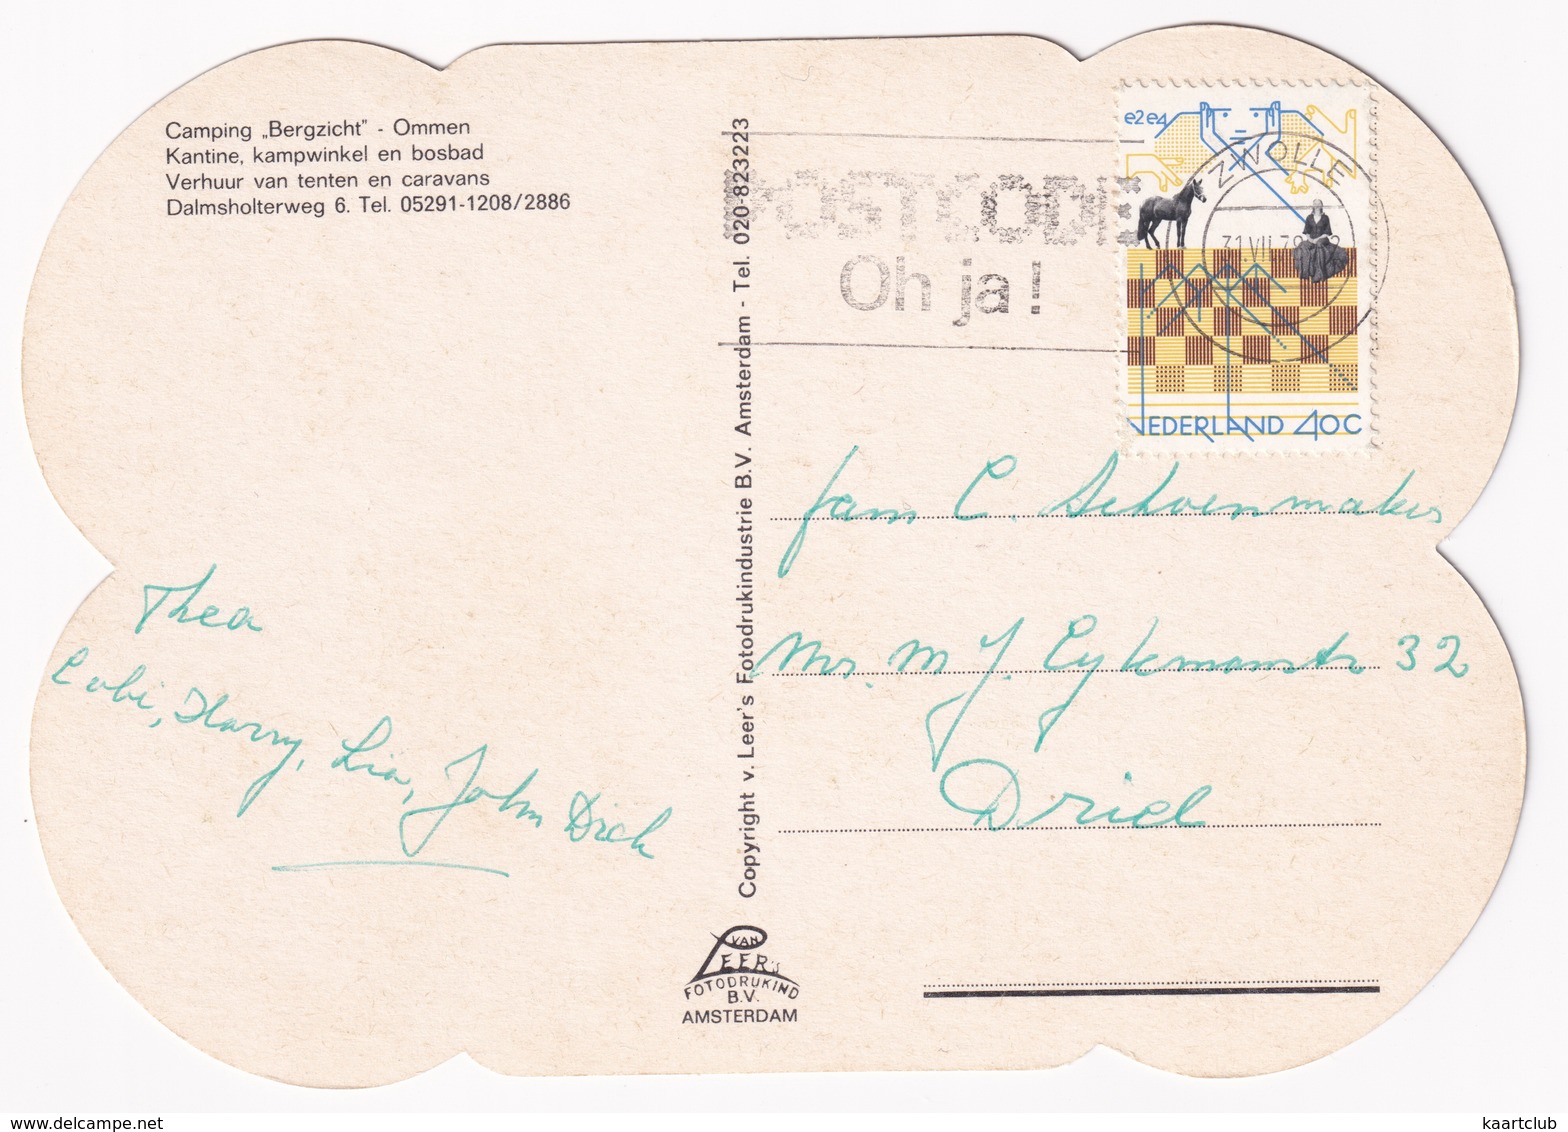 Camping „Bergzicht" - Ommen
Kantine, kampwinkel en bosbad
Verhuur van tenten en caravans
Dalmsholterweg 6. Tel. 05291-1208/2886
Thea
Cobi, Harry, Lia, John Dick
Copyright v. Leer's Fotodrukindustrie B.V. Amsterdam - Tel. 020-823223
VAN
LEER's
FOTODRUKIND
B.V.
AMSTERDAM
POSTCODE
Oh ja!
ZWOLLE
31.VII.78
e2e4
NEDERLAND 40C
fam C. Schoenmaker
Mr. M J. Eykmanstr 32
Driel
www.delcampe.net
kaartclub